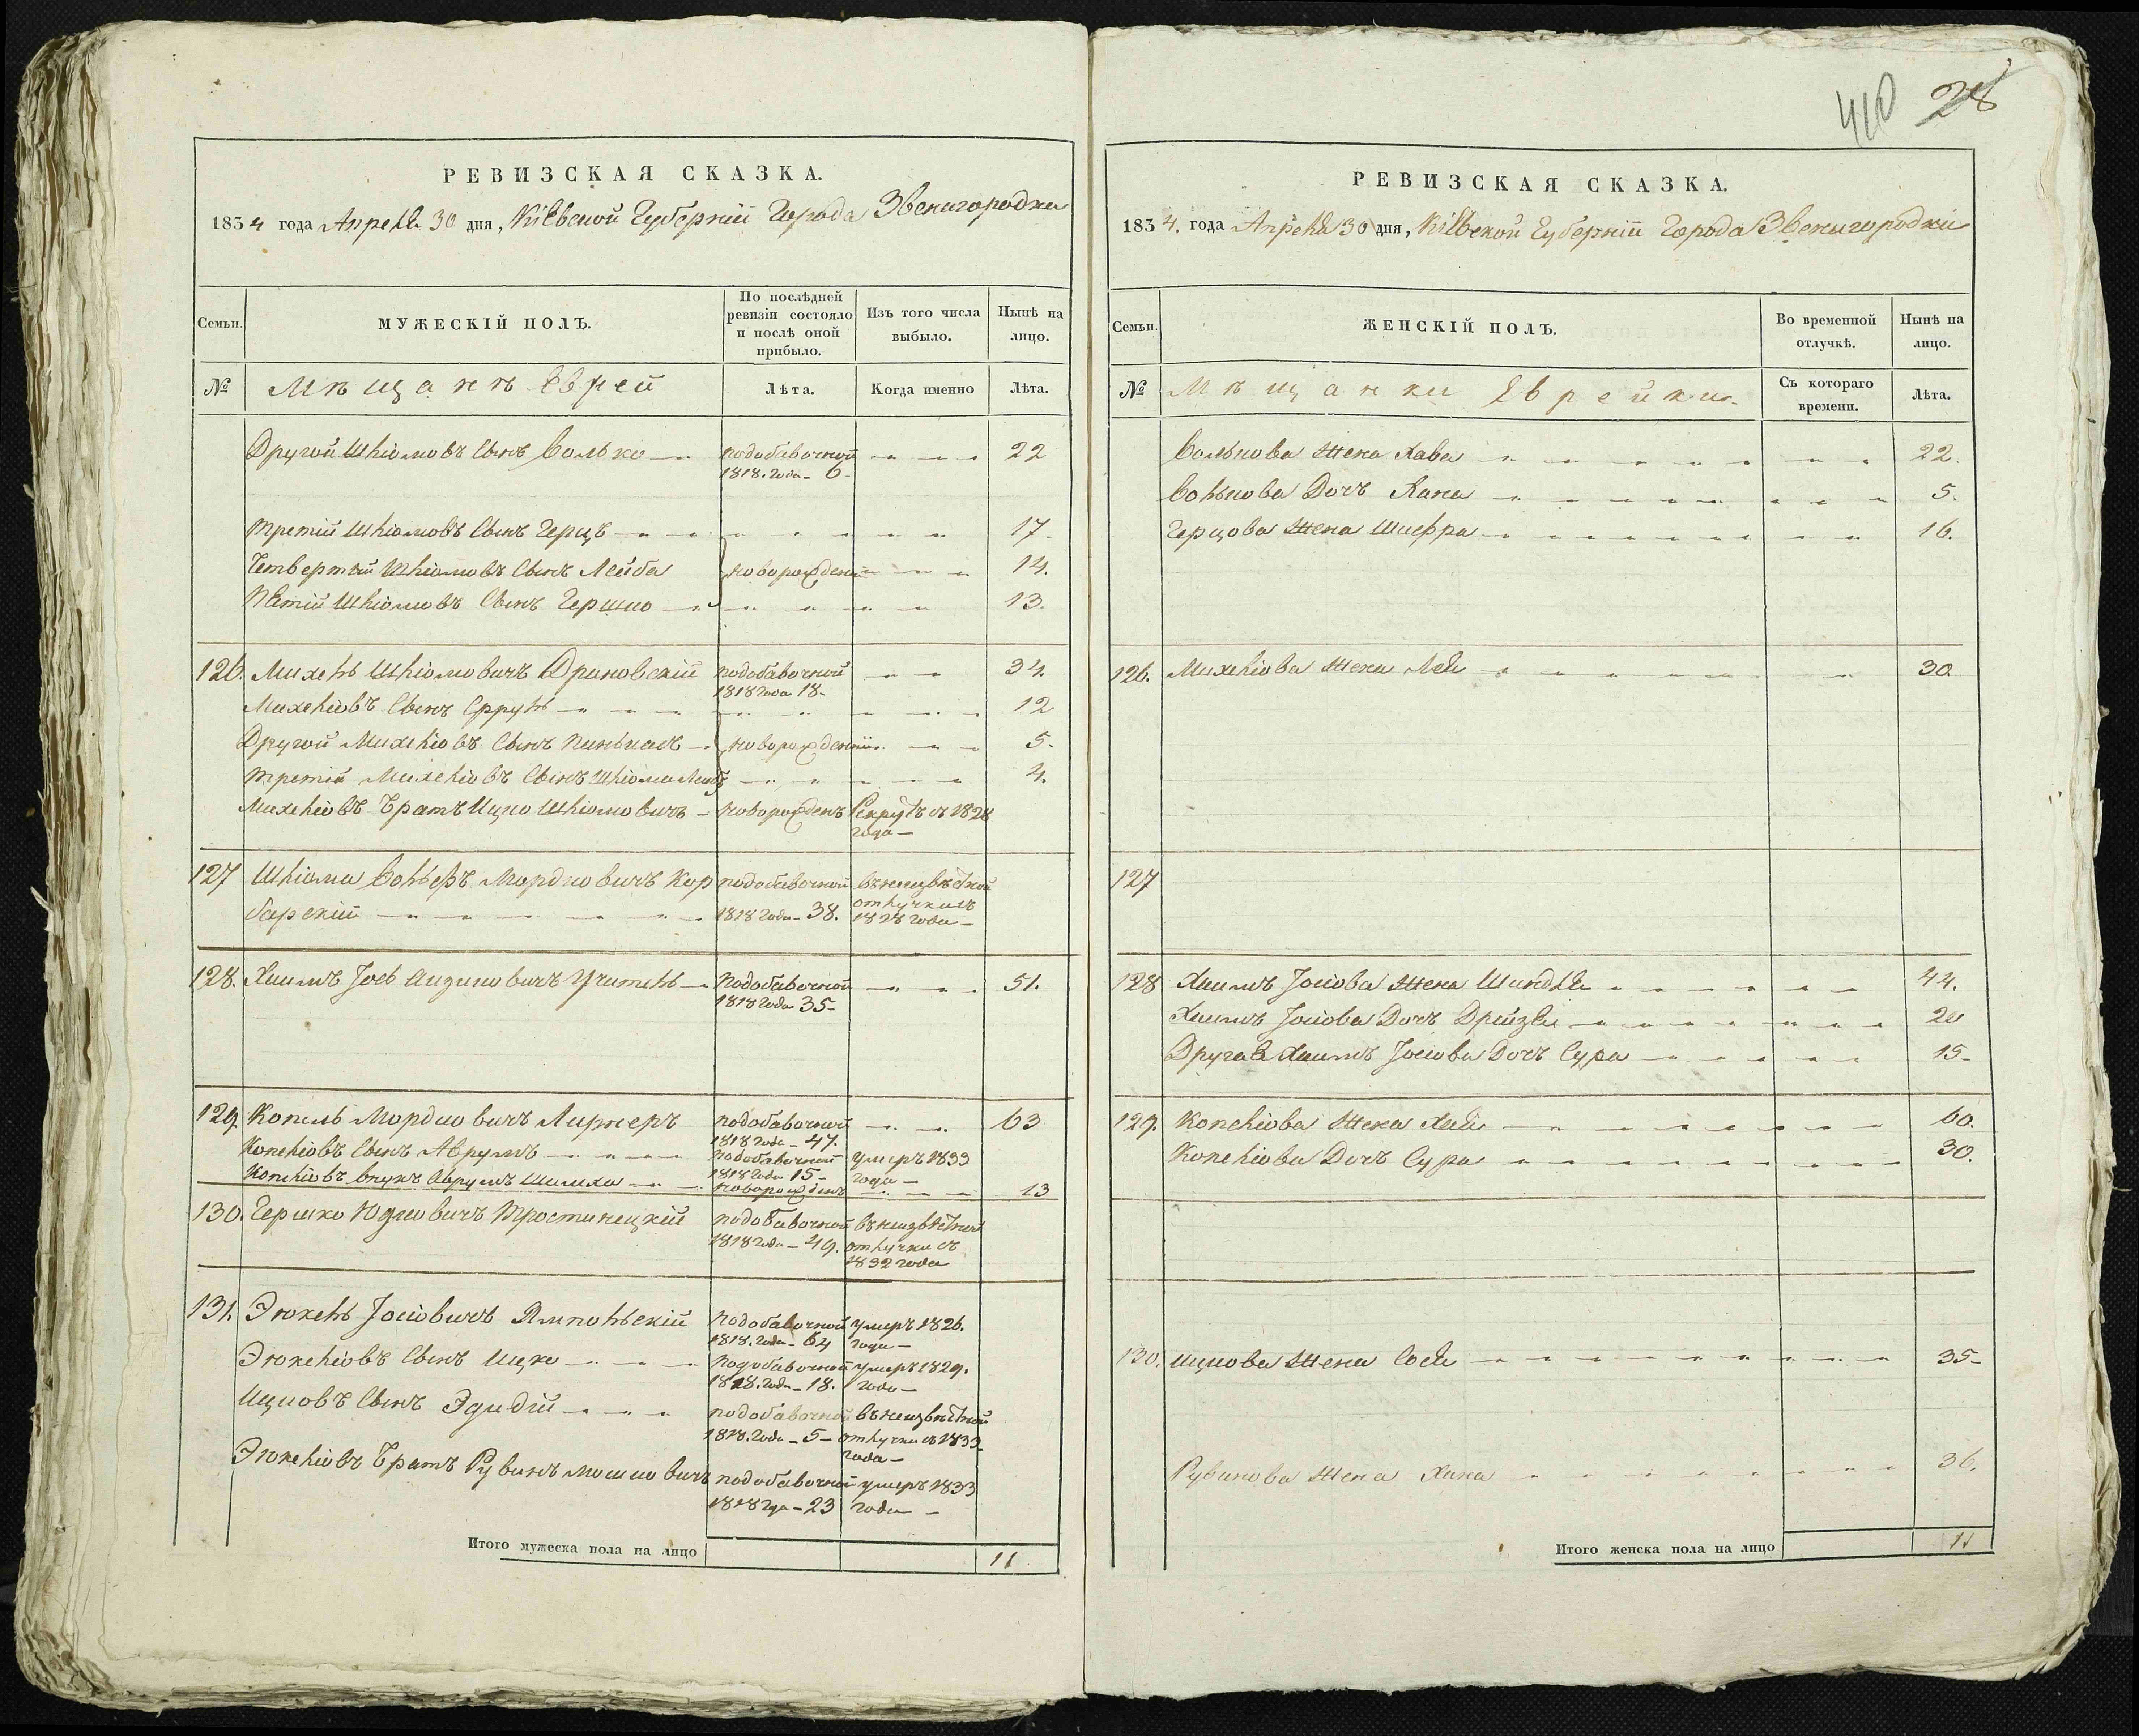 410 28
РЕВИЗСКАЯ СКАЗКА.
1834 года Апреля 30 дня, Кіевской Губерніи Города Звенигородки
Семьи.
МУЖЕСКІЙ ПОЛЪ.
По послѣдней ревизіи состояло и послѣ оной прибыло.
Изъ того числа выбыло.
Нынѣ на лицо.
№
Мѣщанъ Еврей
Лѣта.
Когда именно
Лѣта.
Другой Шліомовъ Сынъ Волько подобавочной 22
1818. Года - 6
третій Шліомовъ Сынъ Герцъ 17
Четвертый Шліомовъ Сынъ Лейба новорожденн 14.
Пятій Шліомовъ Сынъ Гершко 13.
126. Михель Шліомовичъ Драновскій подобавочной 34.
1818 Года 18-
Михеліовъ Сынъ Сррулъ 12
Другой Михеліовъ Сынъ Пинькасъ новорожденніи 5.
третій Михеліовъ Сынъ Шліома Лейбъ 4.
Михеліовъ Братъ Ицко Шліомовичъ новорожденъ Рекрутъ съ 1828
года
127 Шліома Вольфъ Мордковичъ Кор подобавочной въ неизвѣстной
барскій 1818 Года - 38. отлучки съ
1828 года
128. Хаимъ Іось Аизиковичъ Учитель подобавочной 51.
1818 Года 35-
129. Копель Мордковичъ Лирнеръ подобавочной 63
1818 Года - 47.
Копеліовъ Сынъ Аврумъ подобавочной умеръ 1833
1818 Года 15- года
Копеліовъ внукъ Аврумъ Шимха новорожденъ 13
130. Гершко Юдковичъ Тростинецкій подобавочной въ неизвѣстной
1818 Года - 49. отлучки съ
1832 года
131. Элюкель Іосіовичъ Ямпольскій подобавочной умеръ 1826.
1818. Года - 64 года
Элюкеліовъ Сынъ Ицко подобавочной умеръ 1829.
1818. Года - 18. года
Ицковъ Сынъ подобавочной въ неизвѣстной
1818. Года - 5 - отлучки съ 1833
года
Элюкеліовъ Братъ Рувинъ Мошковичъ подобавочной умеръ 1833
1818 Года - 23 года
Итого мужеска пола на лицо 11
РЕВИЗСКАЯ СКАЗКА.
1834. года Апреля 30 дня, Кіевской Губерніи Города Звенигородки
Семьи.
ЖЕНСКІЙ ПОЛЪ.
Во временной отлучкѣ.
Нынѣ на лицо.
№
Мѣщанки Еврейки
Съ котораго времени.
Лѣта.
Волькова Жена Хава 22.
Волькова Дочъ Хана 5.
Герцова Жена Шифра 16.
126. Михеліова Жена Лея 30
127
128 Хаимъ Іосіова Жена Шиндля 44.
Хаимъ Іосіова Дочъ Дрейзля 20
Другая Хаимъ Іосіова Дочъ Сура 15
129. Копеліова Жена Хая 60.
Копеліова Дочъ Сура 30.
130. Ицкова Жена Сося 35
Рувинова Жена Хана 36.
Итого женска пола на лицо 11